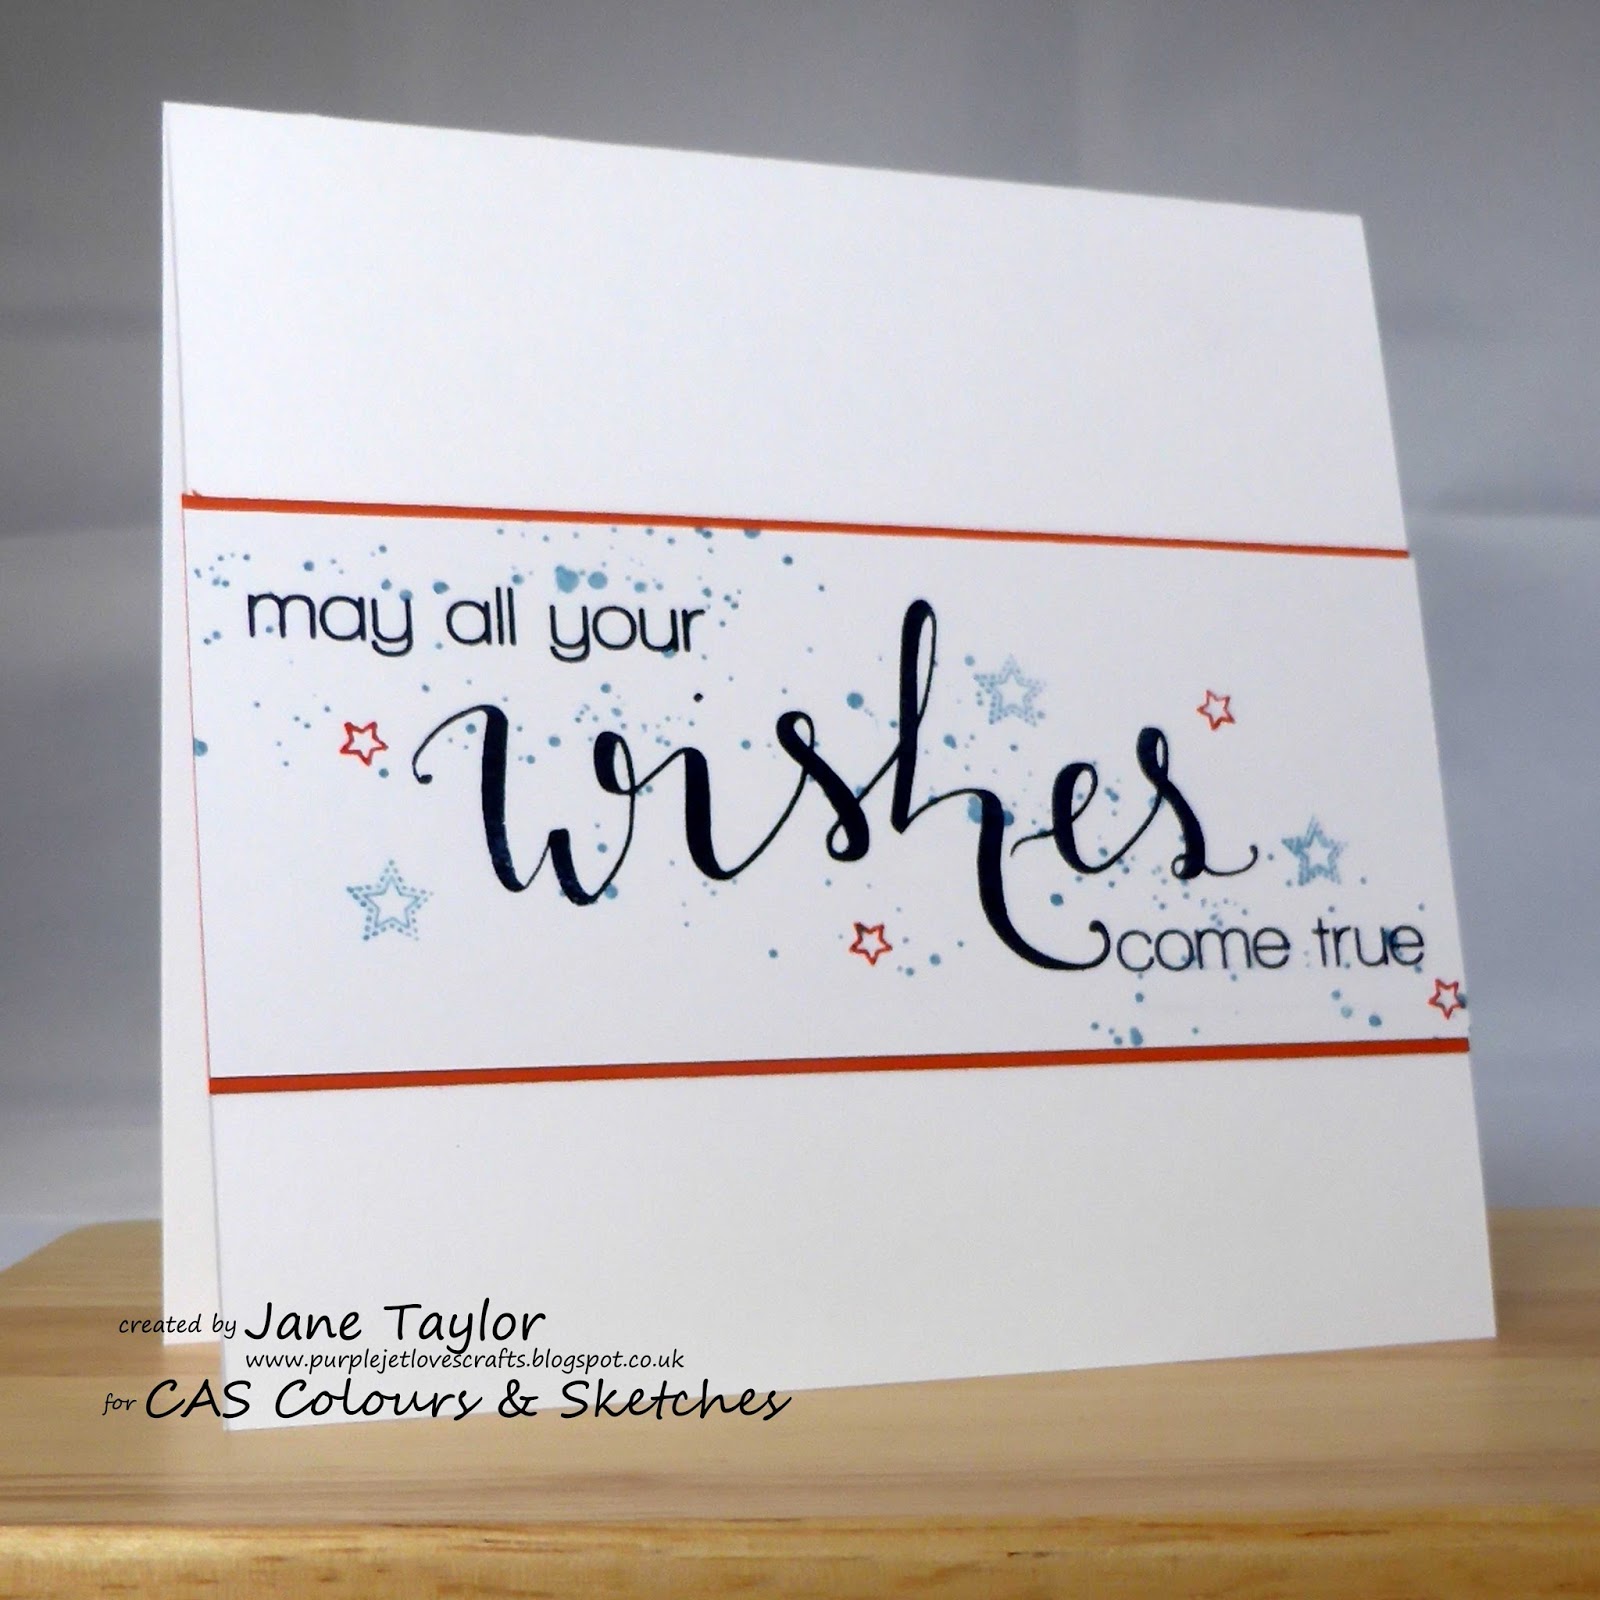 may all your
wishes
come true
created by Jane Taylor
www.purplejetlovescrafts.blogspot.co.uk
for CAS Colours & Sketches